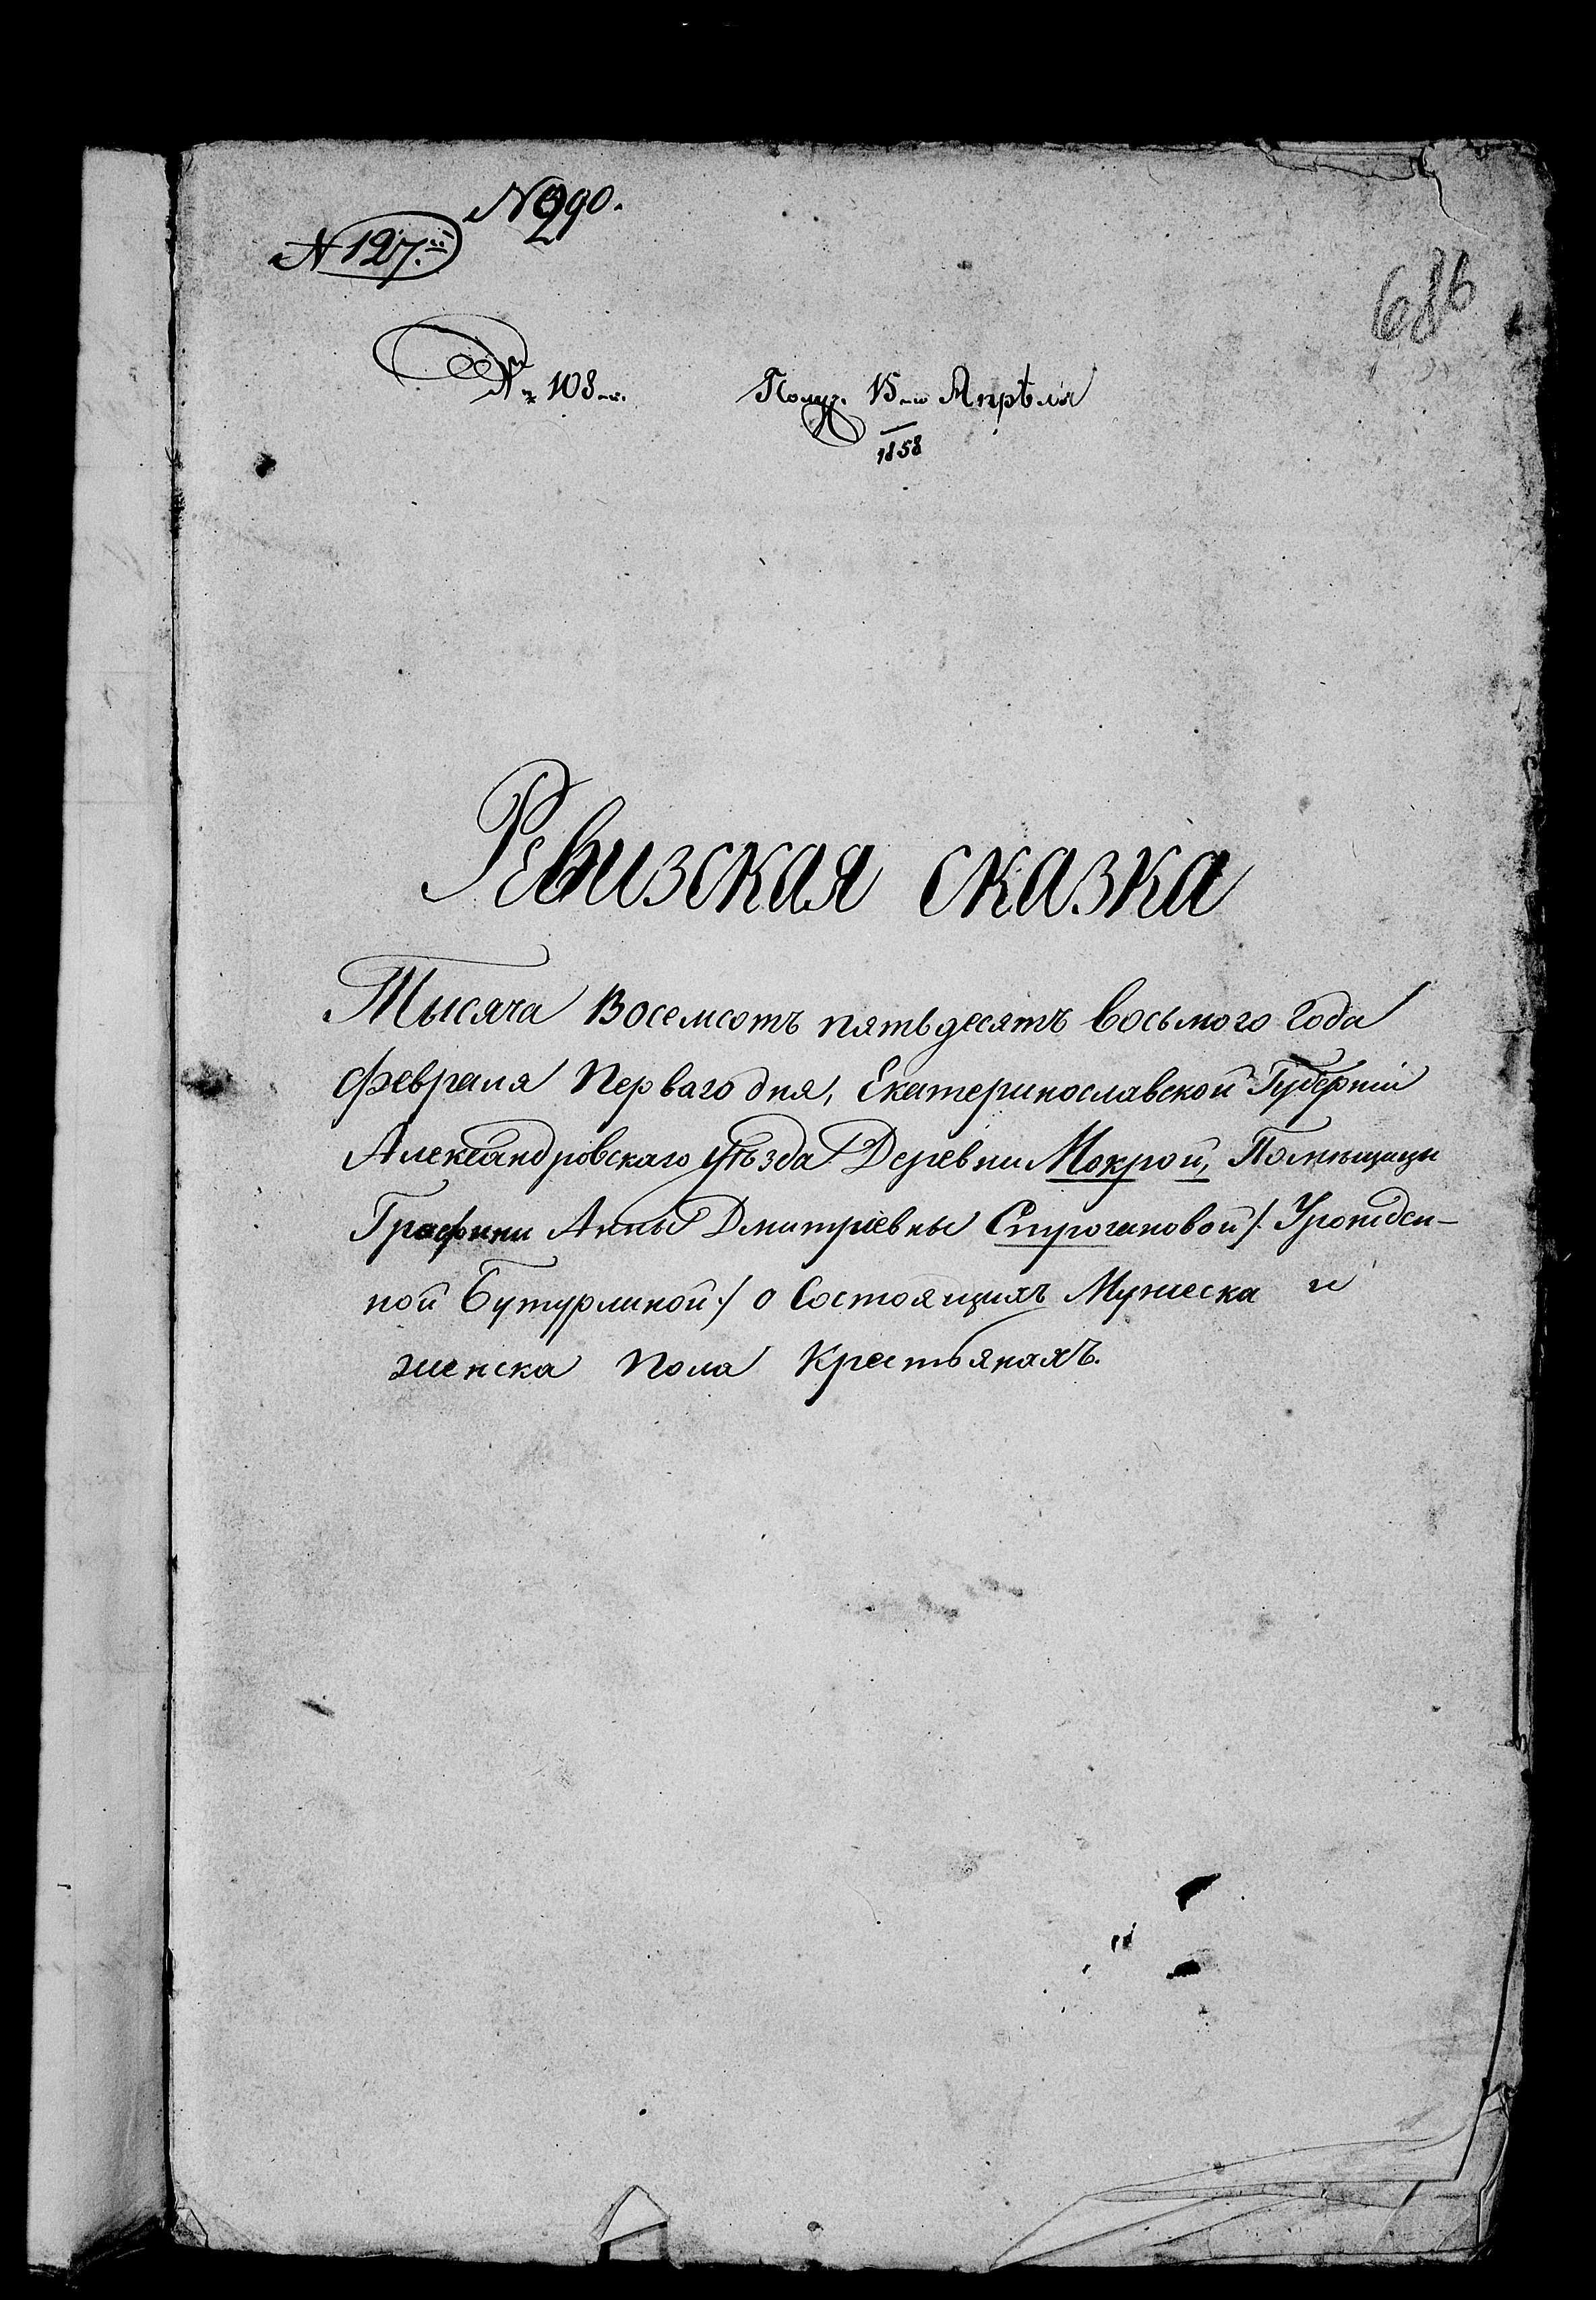 № 290.
№ 127.й
686
№ 108-й.
Получ. 15-го Апрѣля
1858
Ревизская сказка
Тысяча Восемсотъ пятьдесятъ восьмого года
февраля Перваго дня, Екатеринославской Губерніи
Александровскаго уѣзда Деревни Мокрой, Помѣщицы
Графини Анны Дмитріевны Строгановой /. Урожден-
ной Бутурлиной ./ о Состоящихъ Мужеска и
женска пола Крестьянахъ.